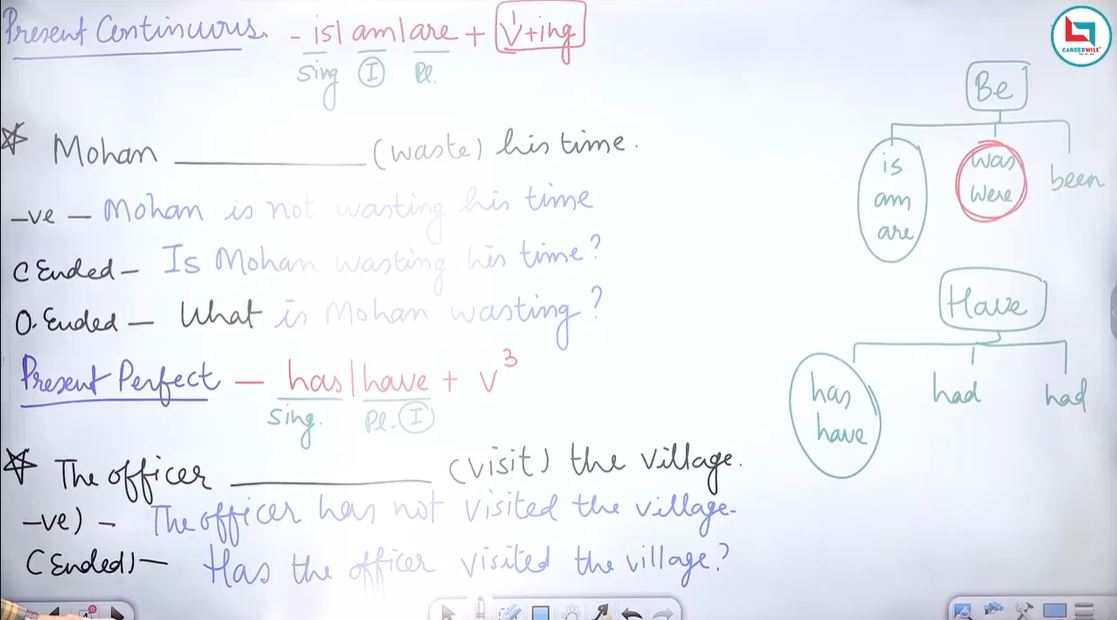 Present Continuous. - is| am| are + V¹+ing
sing I Pl.
Mohan ____________ (waste) his time.
-ve - Mohan is not wasting his time
C Ended - Is Mohan wasting his time?
O. Ended - What is Mohan wasting?
Present Perfect - has|have + V³
Sing. Pl. I
The officer ____________ (visit) the village.
-ve) - The officer has not visited the village.
C Ended) - Has the officer visited the village?
Be
is am are
was were
been
Have
has have
had
had
CAREERWILL